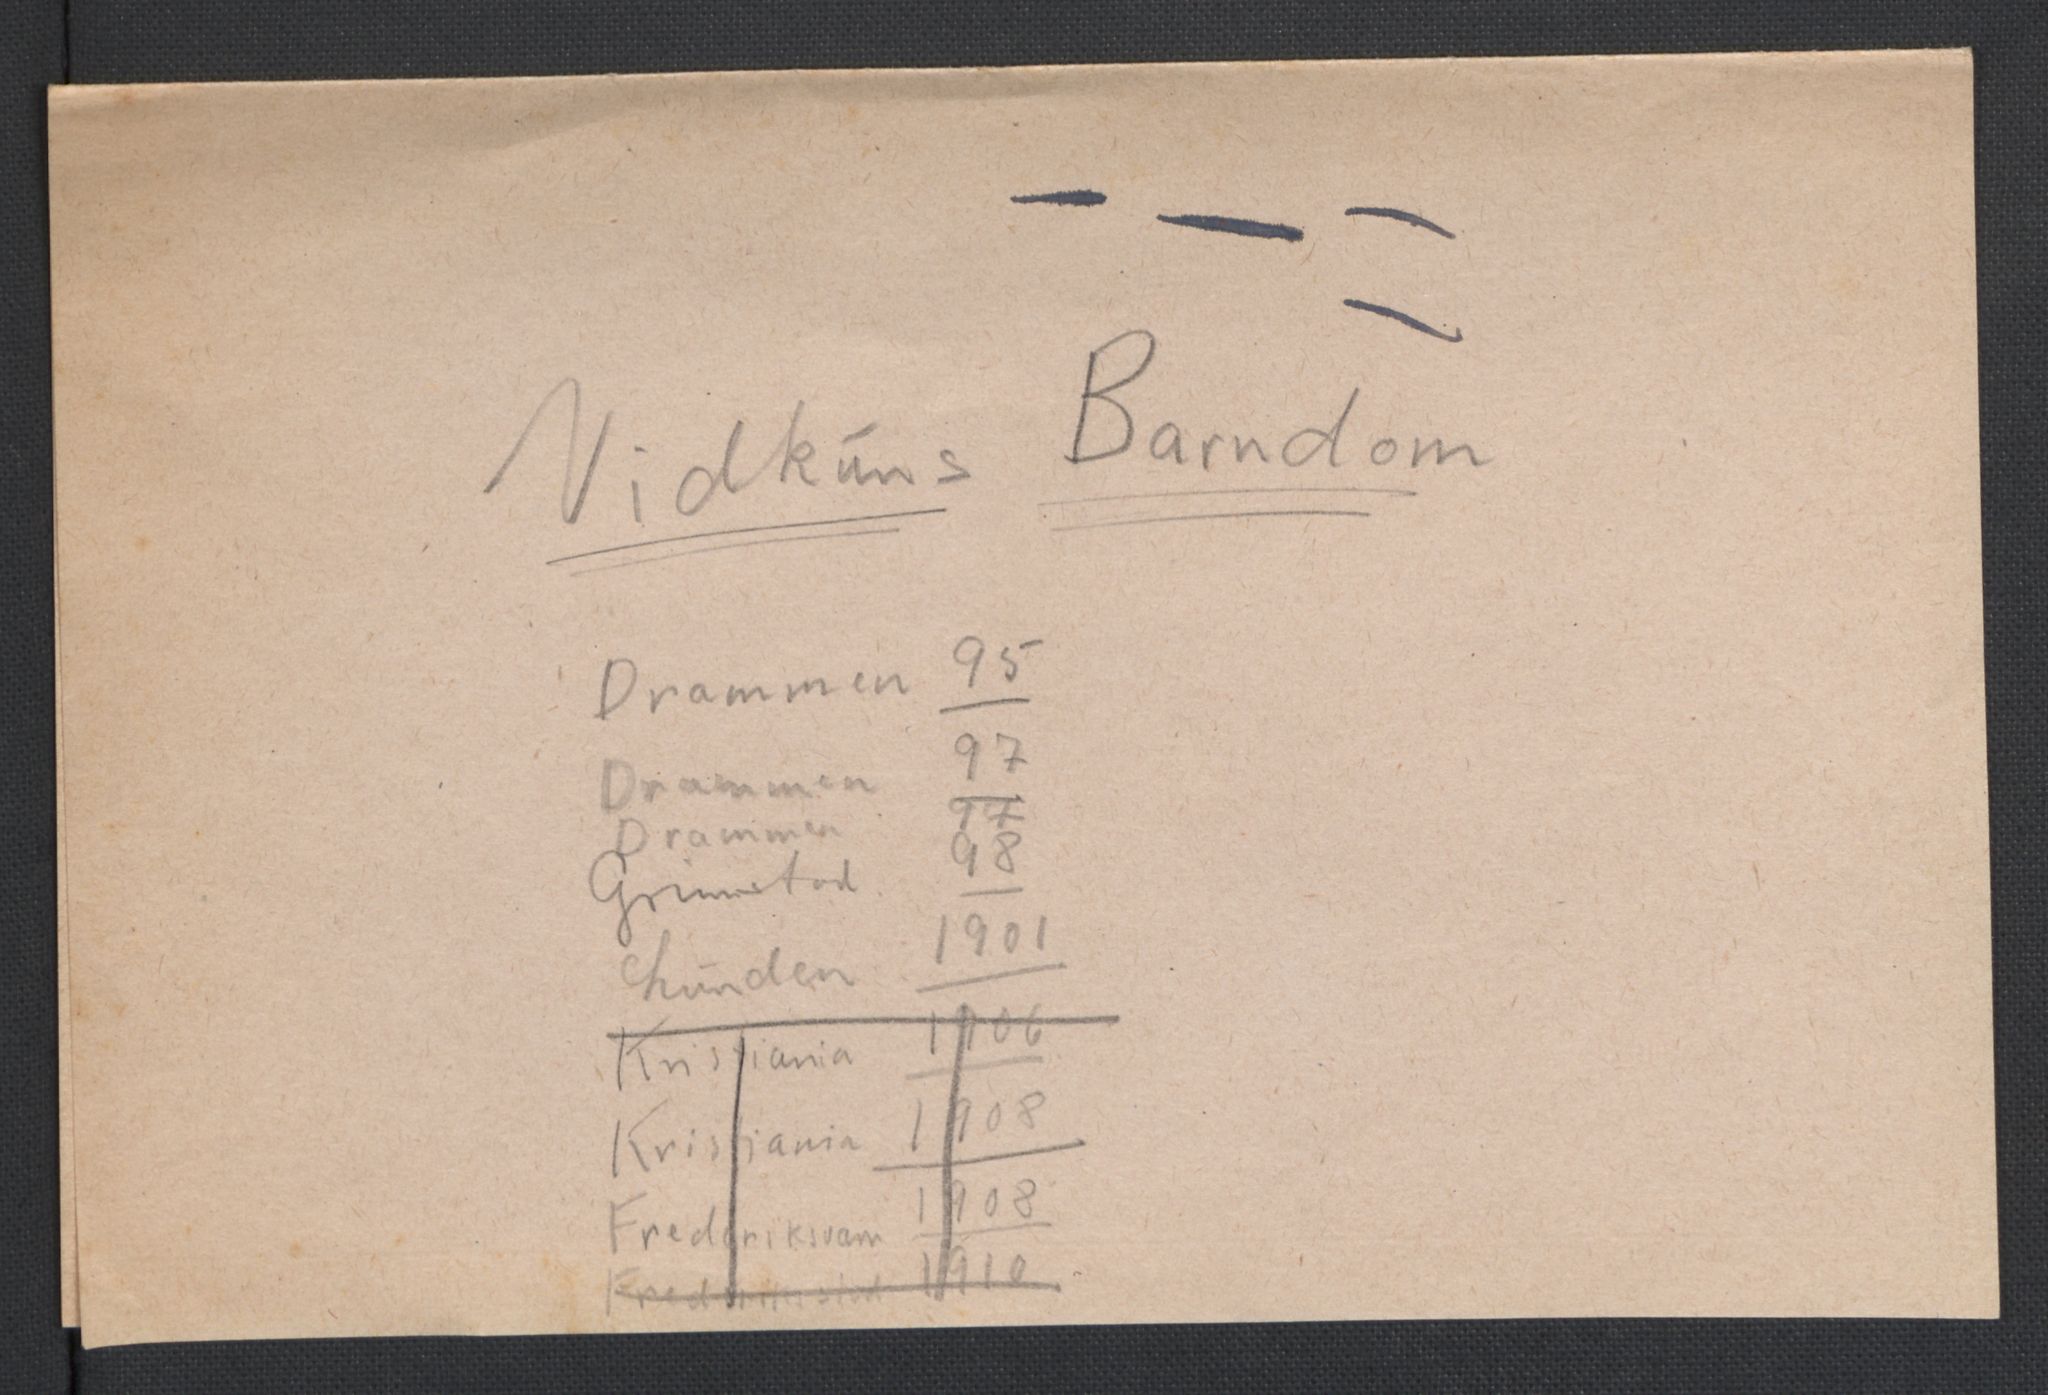 Vidkŭns Barndom
Drammen 95
Drammen 97
Drammen 97
Grimstad 98
1901
Kristiania 1906
Kristiania 1908
Frederiksvarn 1908
Frederikstad 1910